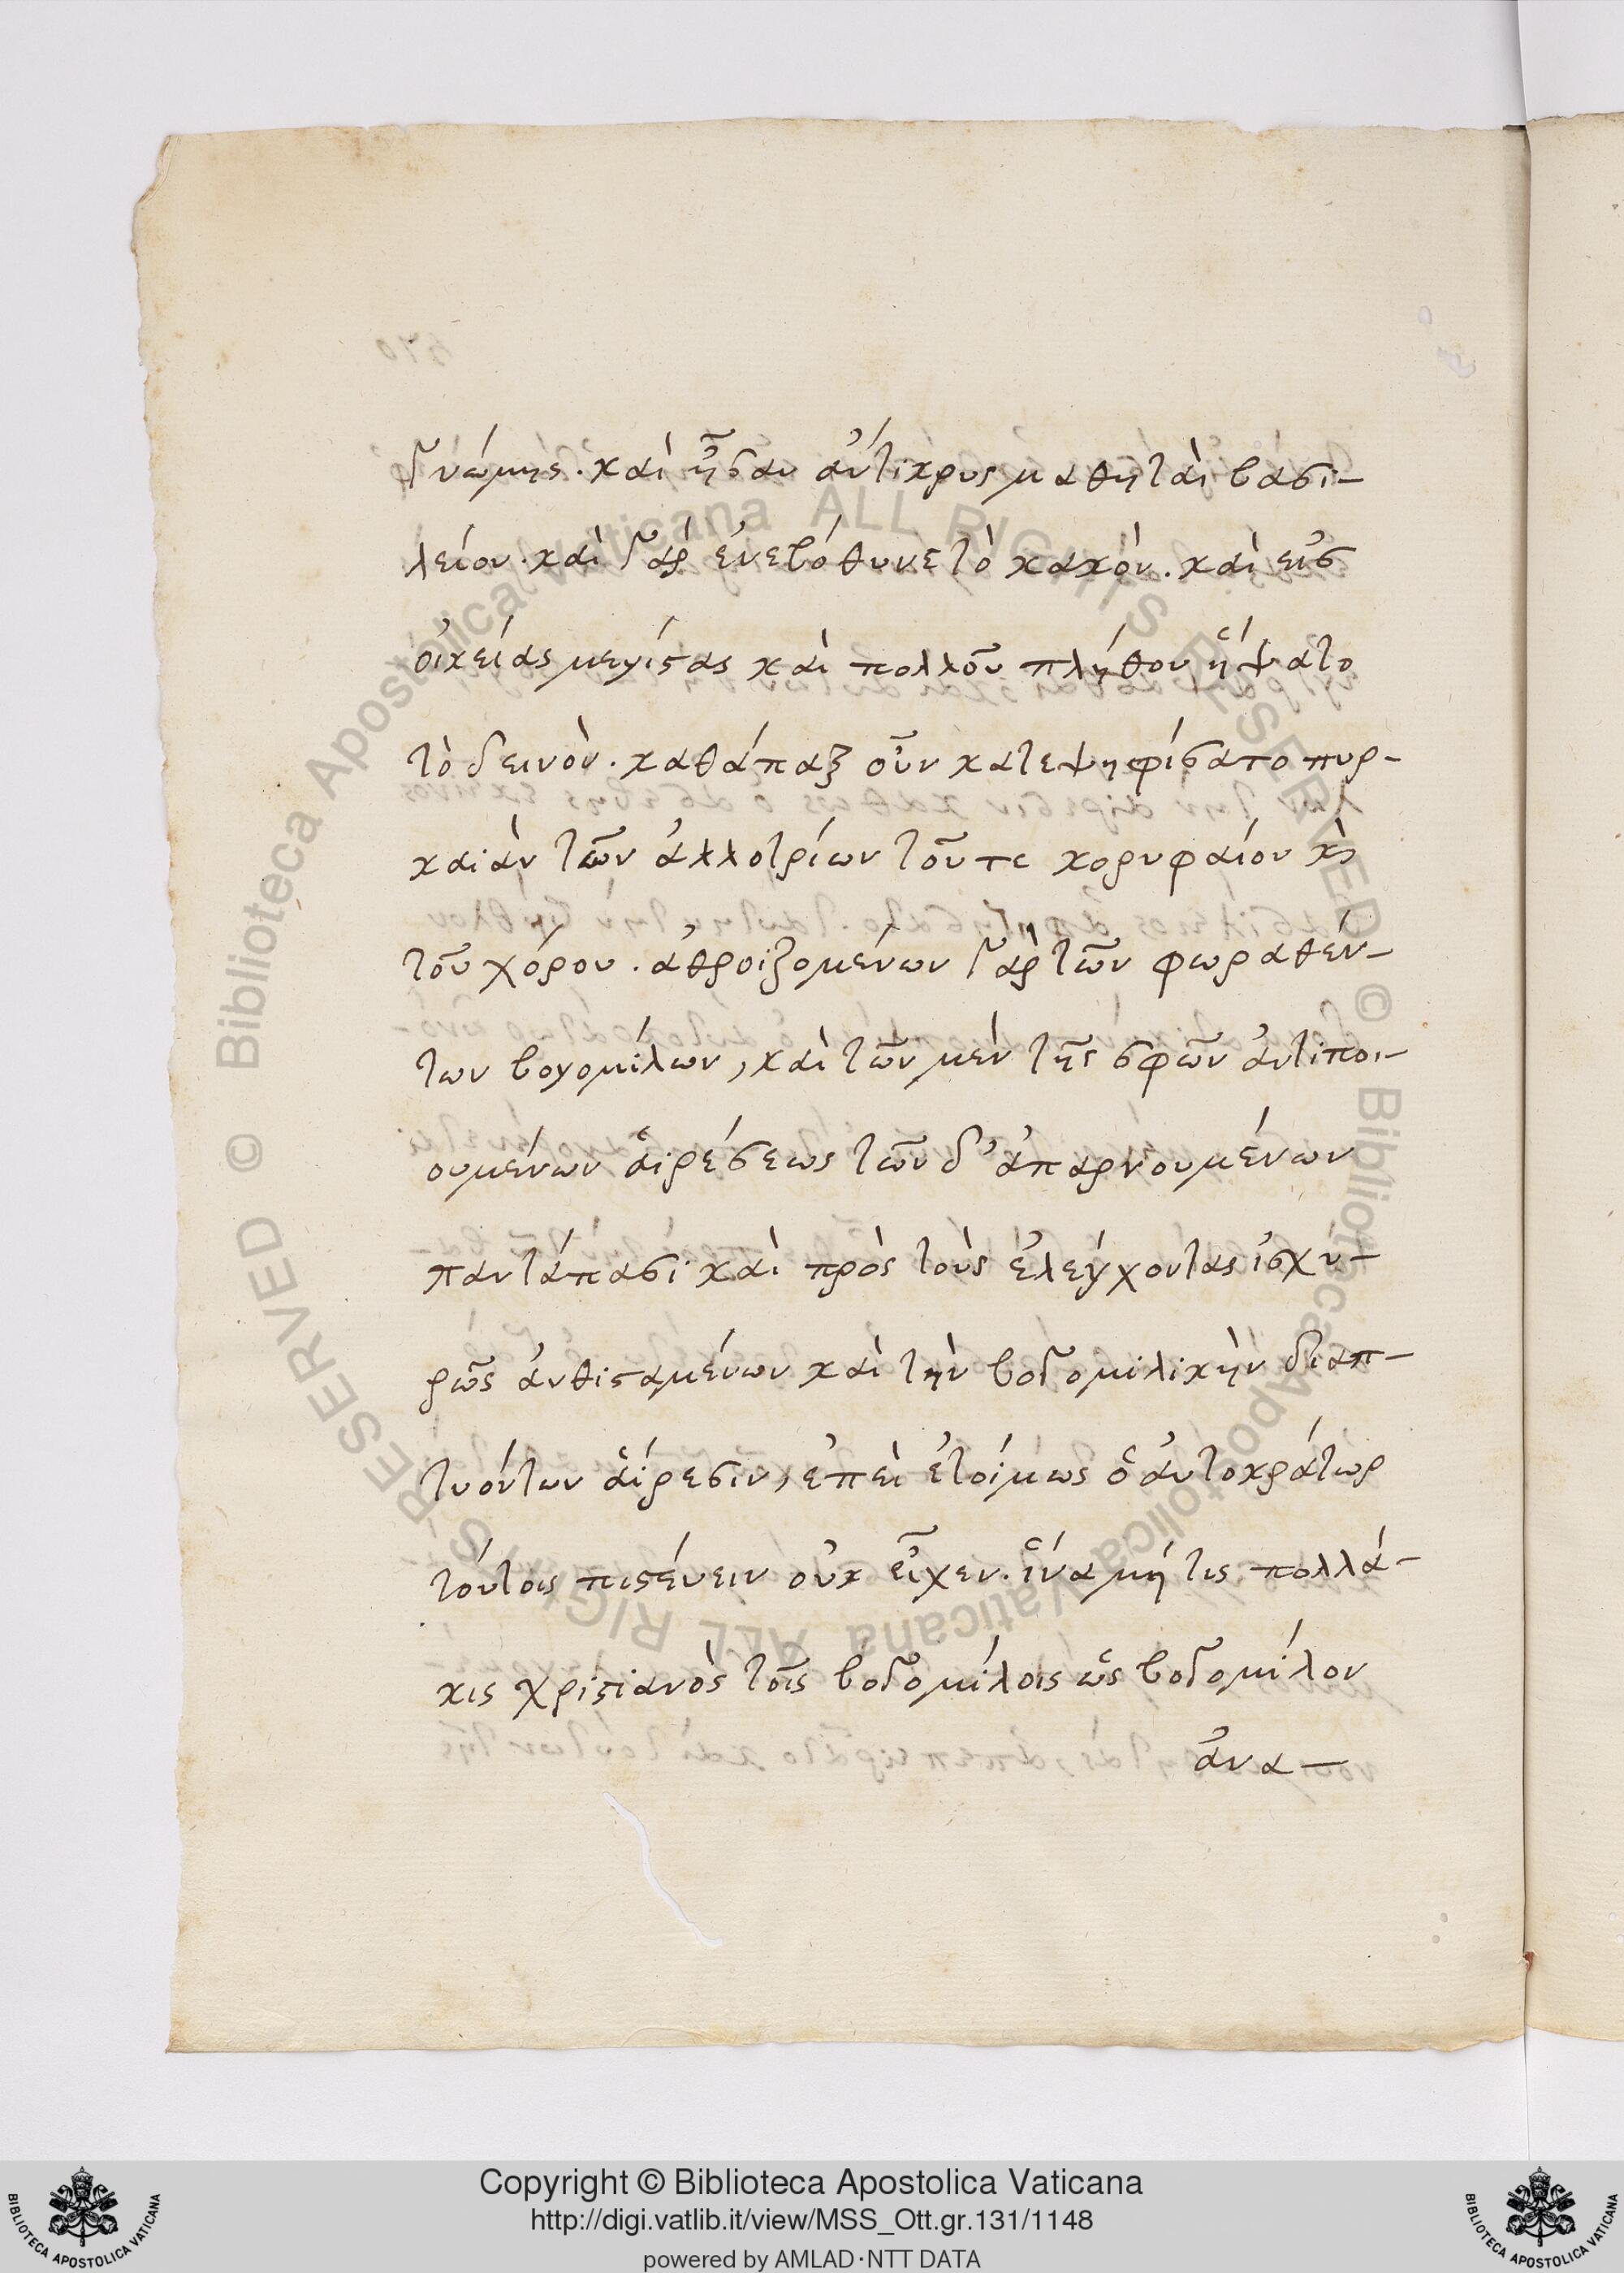 γνώμης. καὶ ἦσαν ἀντίκρυς μαθηταὶ βασι-
λείου. καὶ γὰρ ἐνεβόθυνε τὸ κακὸν. καὶ εἰς
οἰκείας μεγίστας καὶ πολλοῦ πλήθου ἥψατο
τὸ δεινὸν. καθάπαξ οὖν κατεψηφίσατο πυρ-
καϊὰν τῶν ἀλλοτρίων τοῦ τε κορυφαίου κὶ
τοῦ χόρου. ἀθροιζομένων γὰρ τῶν φωραθέν-
των βογομίλων, καὶ τῶν μὲν τῆς σφῶν ἀντιποι-
ουμένων αἱρέσεως τῶν δ' ἀπαρνουμένων
παντάπασι καὶ πρὸς τοὺς ἐλέγχοντας ἰσχυ-
ρῶς ἀνθισταμένων καὶ τὴν βογομιλικὴν διαπ-
τυόντων αἵρεσιν, ἐπεὶ ἑτοίμως ὁ ἀυτοκράτωρ
τούτοις πιστέυειν οὐκ εἶχεν. ἵνα μή τις πολλά-
κις χριστιανὸς τοῖς βογομίλοις ὡς βογομίλον
ἀνα-
Copyright © Biblioteca Apostolica Vaticana
http://digi.vatlib.it/view/MSS_Ott.gr.131/1148
powered by AMLAD·NTT DATA
BIBLIOTECA APOSTOLICA VATICANA
BIBLIOTECA APOSTOLICA VATICANA
© Biblioteca Apostolica Vaticana ALL RIGHTS RESERVED
© Biblioteca Apostolica Vaticana ALL RIGHTS RESERVED